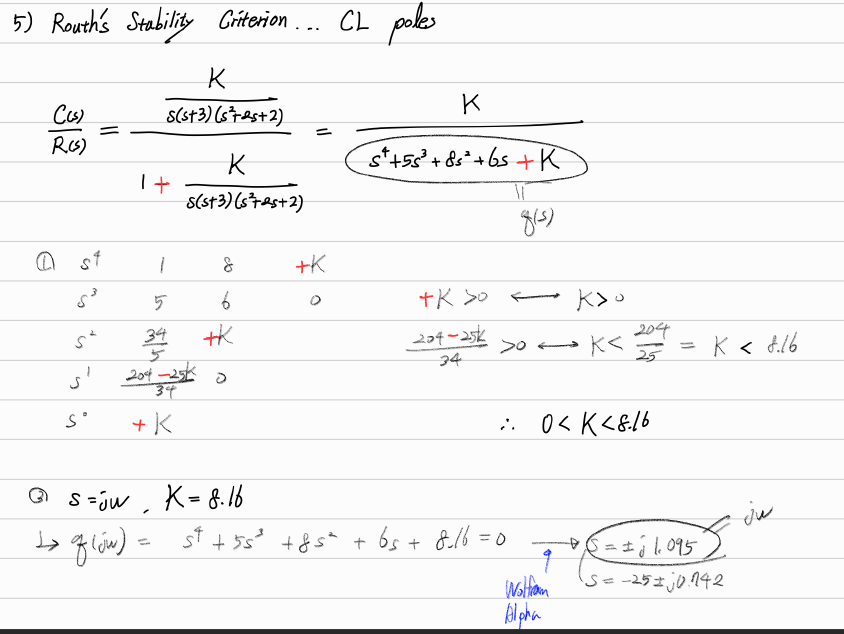 5) Routh's Stability Criterion... CL poles
C(s)/R(s) = (K / s(s+3)(s²+2s+2)) / (1 + K / s(s+3)(s²+2s+2)) = K / (s⁴+5s³+8s²+6s+K)
||
q(s)
① s⁴ 1 8 +K
s³ 5 6 0 +K>0 ⟷ K>0
s² 34/5 +K (204-25K)/34 >0 ⟷ K< 204/25 = K < 8.16
s¹ (204-25K)/34 0
s⁰ +K ∴ 0<K<8.16
② s=jw, K=8.16
↳ q(jw) = s⁴+5s³+8s²+6s+8.16=0 → s=±j1.095 jw
s=-25±j0.742
Wolfram
Alpha